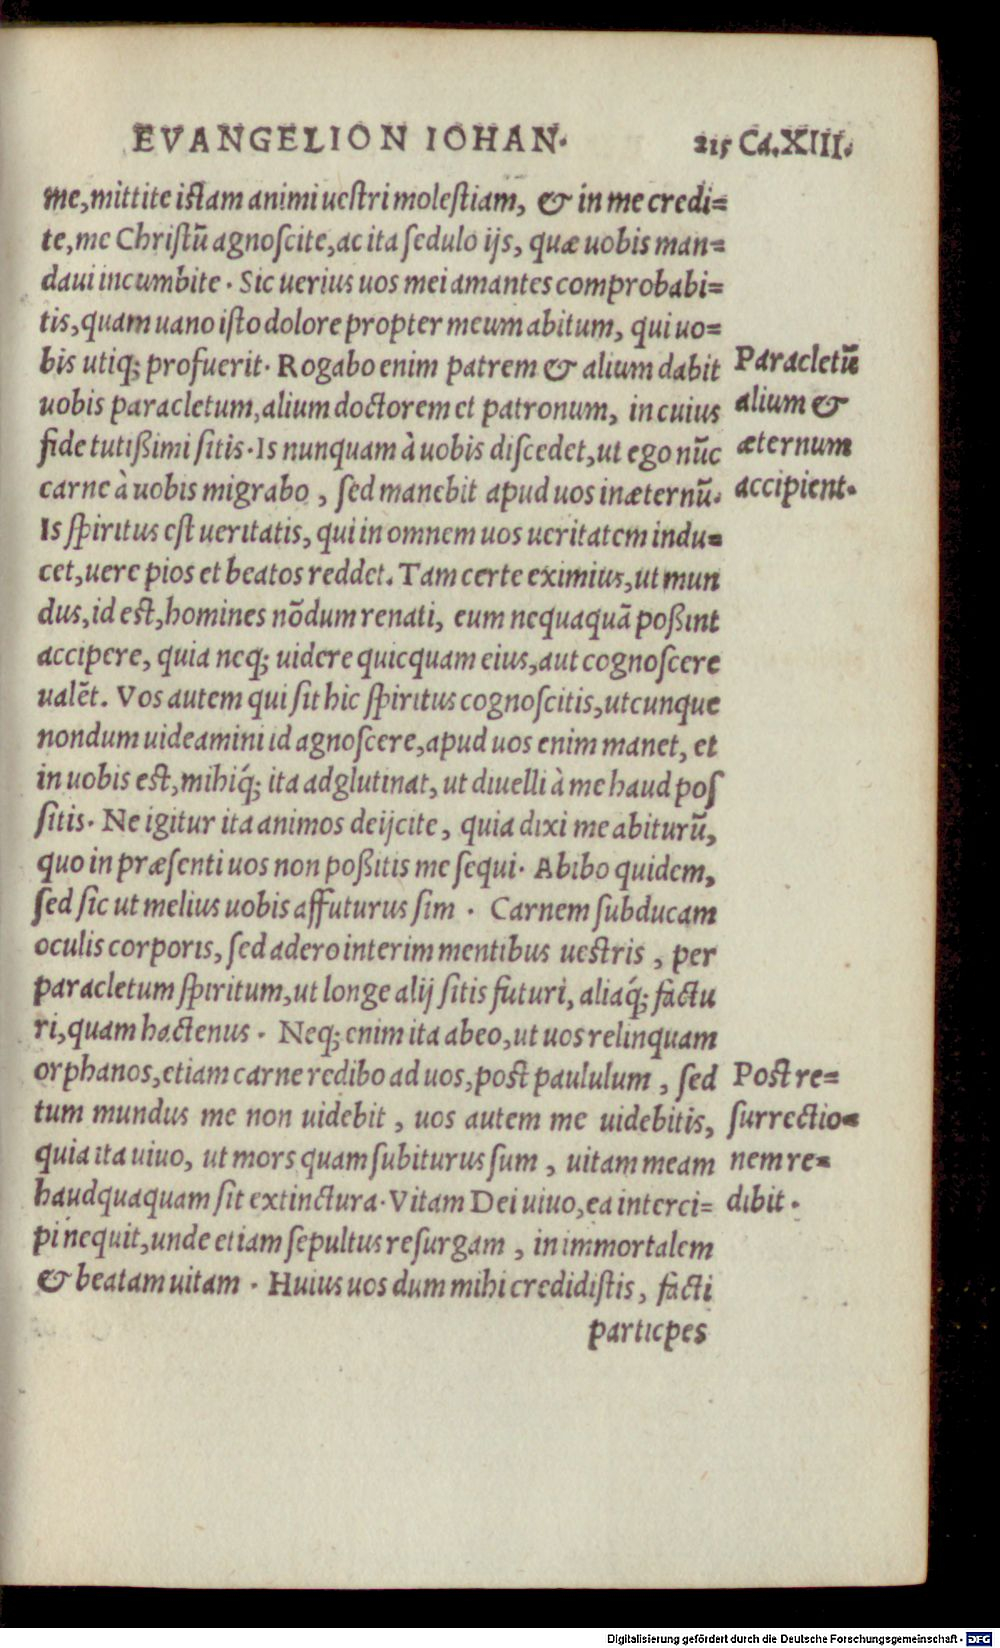 EVANGELION IOHAN.
215 Ca. XIII.
me, mittite istam animi uestri molestiam, & in me credi=
te, me Christũ agnoscite, ac ita sedulo ijs, quæ uobis man=
daui incumbite. Sic uerius uos mei amantes comprobabi=
tis, quam uano isto dolore propter meum abitum, qui uo=
bis utiq; profuerit. Rogabo enim patrem & alium dabit
uobis paracletum, alium doctorem et patronum, in cuius
fide tutißimi sitis. Is nunquam à uobis discedet, ut ego nũc
carne à uobis migrabo, sed manebit apud uos inæternũ.
Is spiritus est ueritatis, qui in omnem uos ueritatem indu=
cet, uere pios et beatos reddet. Tam certe eximius, ut mun
dus, id est, homines nõdum renati, eum nequaquã poßint
accipere, quia neq; uidere quicquam eius, aut cognoscere
ualẽt. Vos autem qui sit hic spiritus cognoscitis, utcunque
nondum uideamini id agnoscere, apud uos enim manet, et
in uobis est, mihiq́; ita adglutinat, ut diuelli à me haud pos
sitis. Ne igitur ita animos deijcite, quia dixi me abiturũ,
quo in præsenti uos non poßitis me sequi. Abibo quidem,
sed sic ut melius uobis affuturus sim. Carnem subducam
oculis corporis, sed adero interim mentibus uestris, per
paracletum spiritum, ut longe alij sitis futuri, aliaq́; factu
ri, quam hactenus. Neq; enim ita abeo, ut uos relinquam
orphanos, etiam carne redibo ad uos, post paululum, sed
tum mundus me non uidebit, uos autem me uidebitis,
quia ita uiuo, ut mors quam subiturus sum, uitam meam
haudquaquam sit extinctura. Vitam Dei uiuo, ea interci=
pi nequit, unde etiam sepultus resurgam, in immortalem
& beatam uitam. Huius uos dum mihi credidistis, facti
particpes
Paracletũ
alium &
æternum
accipient.
Post re=
surrectio=
nem re=
dibit.
Digitalisierung gefördert durch die Deutsche Forschungsgemeinschaft - DFG